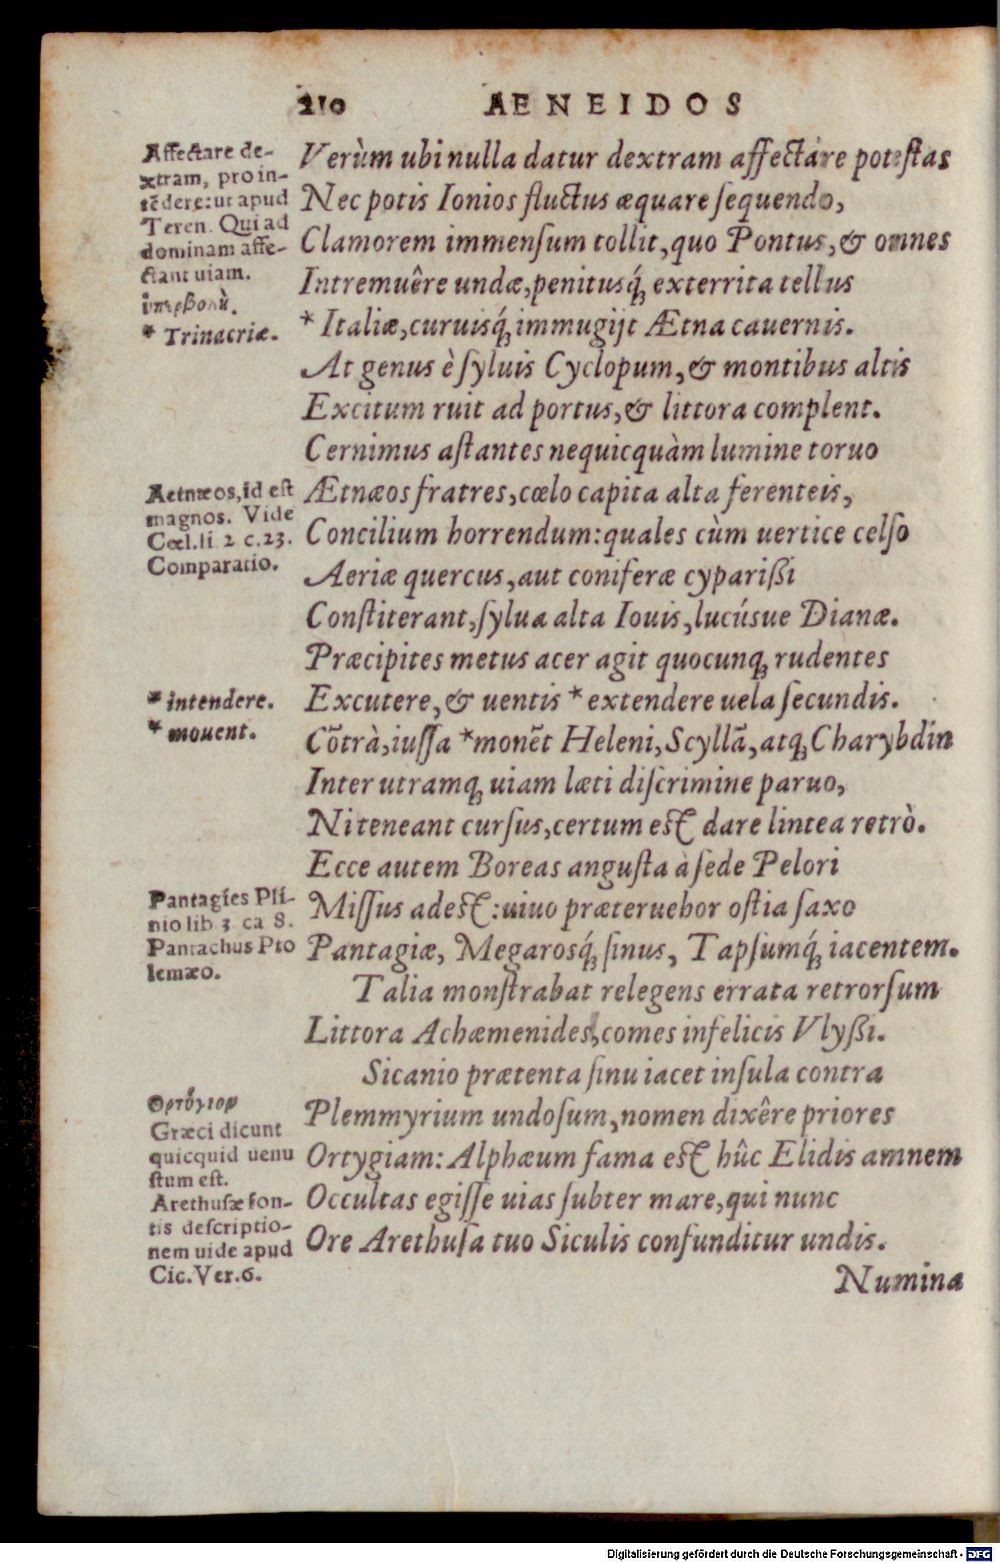 210 AENEIDOS
Affectare de-
xtram, pro in-
tēdere: ut apud
Teren. Qui ad
dominam affe-
ctant uiam.
ὑπερβολή.
* Trinacriæ.
Verùm ubi nulla datur dextram affectare potestas
Nec potis Ionios fluctus æquare sequendo,
Clamorem immensum tollit, quo Pontus, & omnes
Intremuêre undæ, penitusq́; exterrita tellus
* Italiæ, curuisq́; immugijt Ætna cauernis.
At genus è syluis Cyclopum, & montibus altis
Excitum ruit ad portus, & littora complent.
Cernimus astantes nequicquàm lumine toruo
Aetnæos, id est
magnos. Vide
Cœl. li 2 c. 23.
Comparatio.
Ætnæos fratres, cœlo capita alta ferenteis,
Concilium horrendum: quales cùm uertice celso
Aeriæ quercus, aut coniferæ cyparißi
Constiterant, sylua alta Iouis, lucúsue Dianæ.
Præcipites metus acer agit quocunq; rudentes
* intendere.
* mouent.
Excutere, & uentis * extendere uela secundis.
Cōtrà, iussa * monēt Heleni, Scyllā, atq; Charybdin
Inter utramq; uiam læti discrimine paruo,
Ni teneant cursus, certum est dare lintea retrò.
Ecce autem Boreas angusta à sede Pelori
Pantagies Pli-
nio lib 3 ca 8.
Pantachus Pto
lemæo.
Missus adest: uiuo præteruehor ostia saxo
Pantagiæ, Megarosq́; sinus, Tapsumq́; iacentem.
Talia monstrabat relegens errata retrorsum
Littora Achæmenides, comes infelicis Vlyßi.
Sicanio prætenta sinu iacet insula contra
Ὀρτύγιον
Græci dicunt
quicquid uenu
stum est.
Arethusæ fon-
tis descriptio-
nem uide apud
Cic. Ver. 6.
Plemmyrium undosum, nomen dixêre priores
Ortygiam: Alphæum fama est hûc Elidis amnem
Occultas egisse uias subter mare, qui nunc
Ore Arethusa tuo Siculis confunditur undis.
Numina
Digitalisierung gefördert durch die Deutsche Forschungsgemeinschaft - DFG